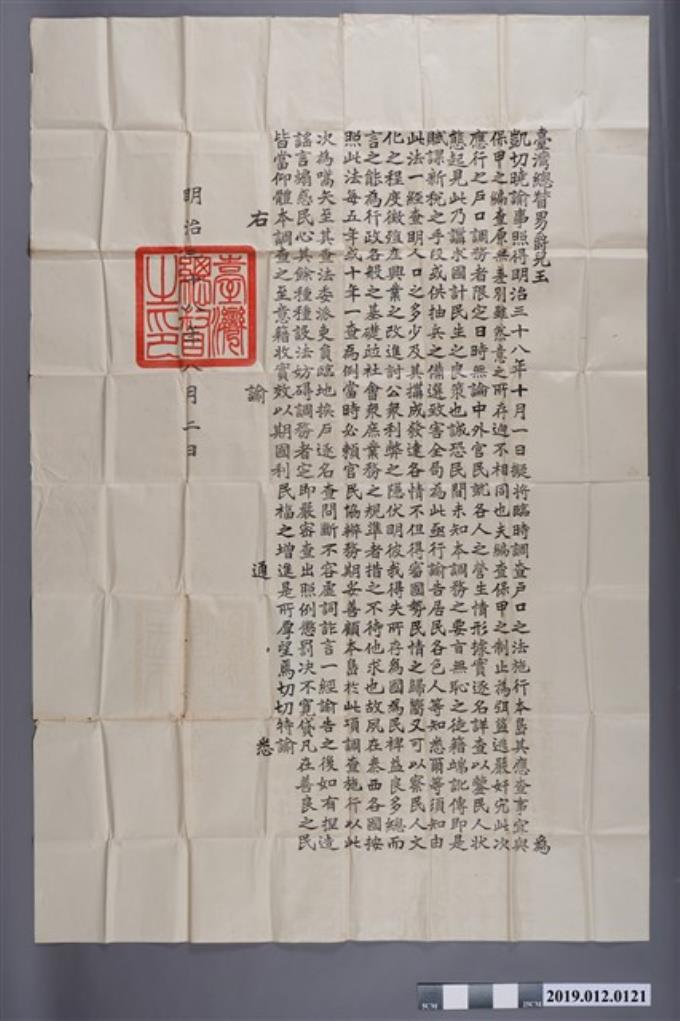 臺灣總督男爵兒玉 為
凱切曉諭事照得明治三十八年十月一日擬將臨時調查戶口之法施行本島其應查事宜與
保甲之編查原無差別雖然意之所存迥不相同也夫編查保甲之制止為弭盜逃嚴奸宄此次
應行之戶口調務者限定日時無論中外官民就各人之營生情形據實逐名詳查以鑒民人狀
態起見此乃講求國計民生之良策也誠恐民間未知本調務之要旨無恥之徒藉端訛傳即是
賦課新稅之手段或供抽兵之備選致害全局為此亟行諭告居民各色人等知悉爾等須知由
此法一經查明人口之多少及其搆成發達各情不但得審國勢民情之歸嚮又可以察民人文
化之程度徵殖產興業之改進討公衆利弊之隱伏明彼我得失所存為國為民裨益良多總而
言之能為行政各般之基礎竝社會衆庶業務之規準者措之不待他求也故夙在泰西各國按
照此法每五年或十年一查為例當時必賴官民協辦務期妥善顧本島於此項調查施行以此
次為嚆矢至其查法委派吏員臨地挨戶逐名查問斷不容虛詞詐言一經諭告之後如有揑造
謠言煽惑民心其餘種種設法妨碍調務者定即嚴審查出照例懲罰決不寬貸凡在善良之民
皆當仰體本調查之至意藉收實效以期國利民福之增進是所厚望焉切切特諭
右 諭 通 悉
明治三十八年八月二日
臺灣總督之印
2019.012.0121
5CM 25CM